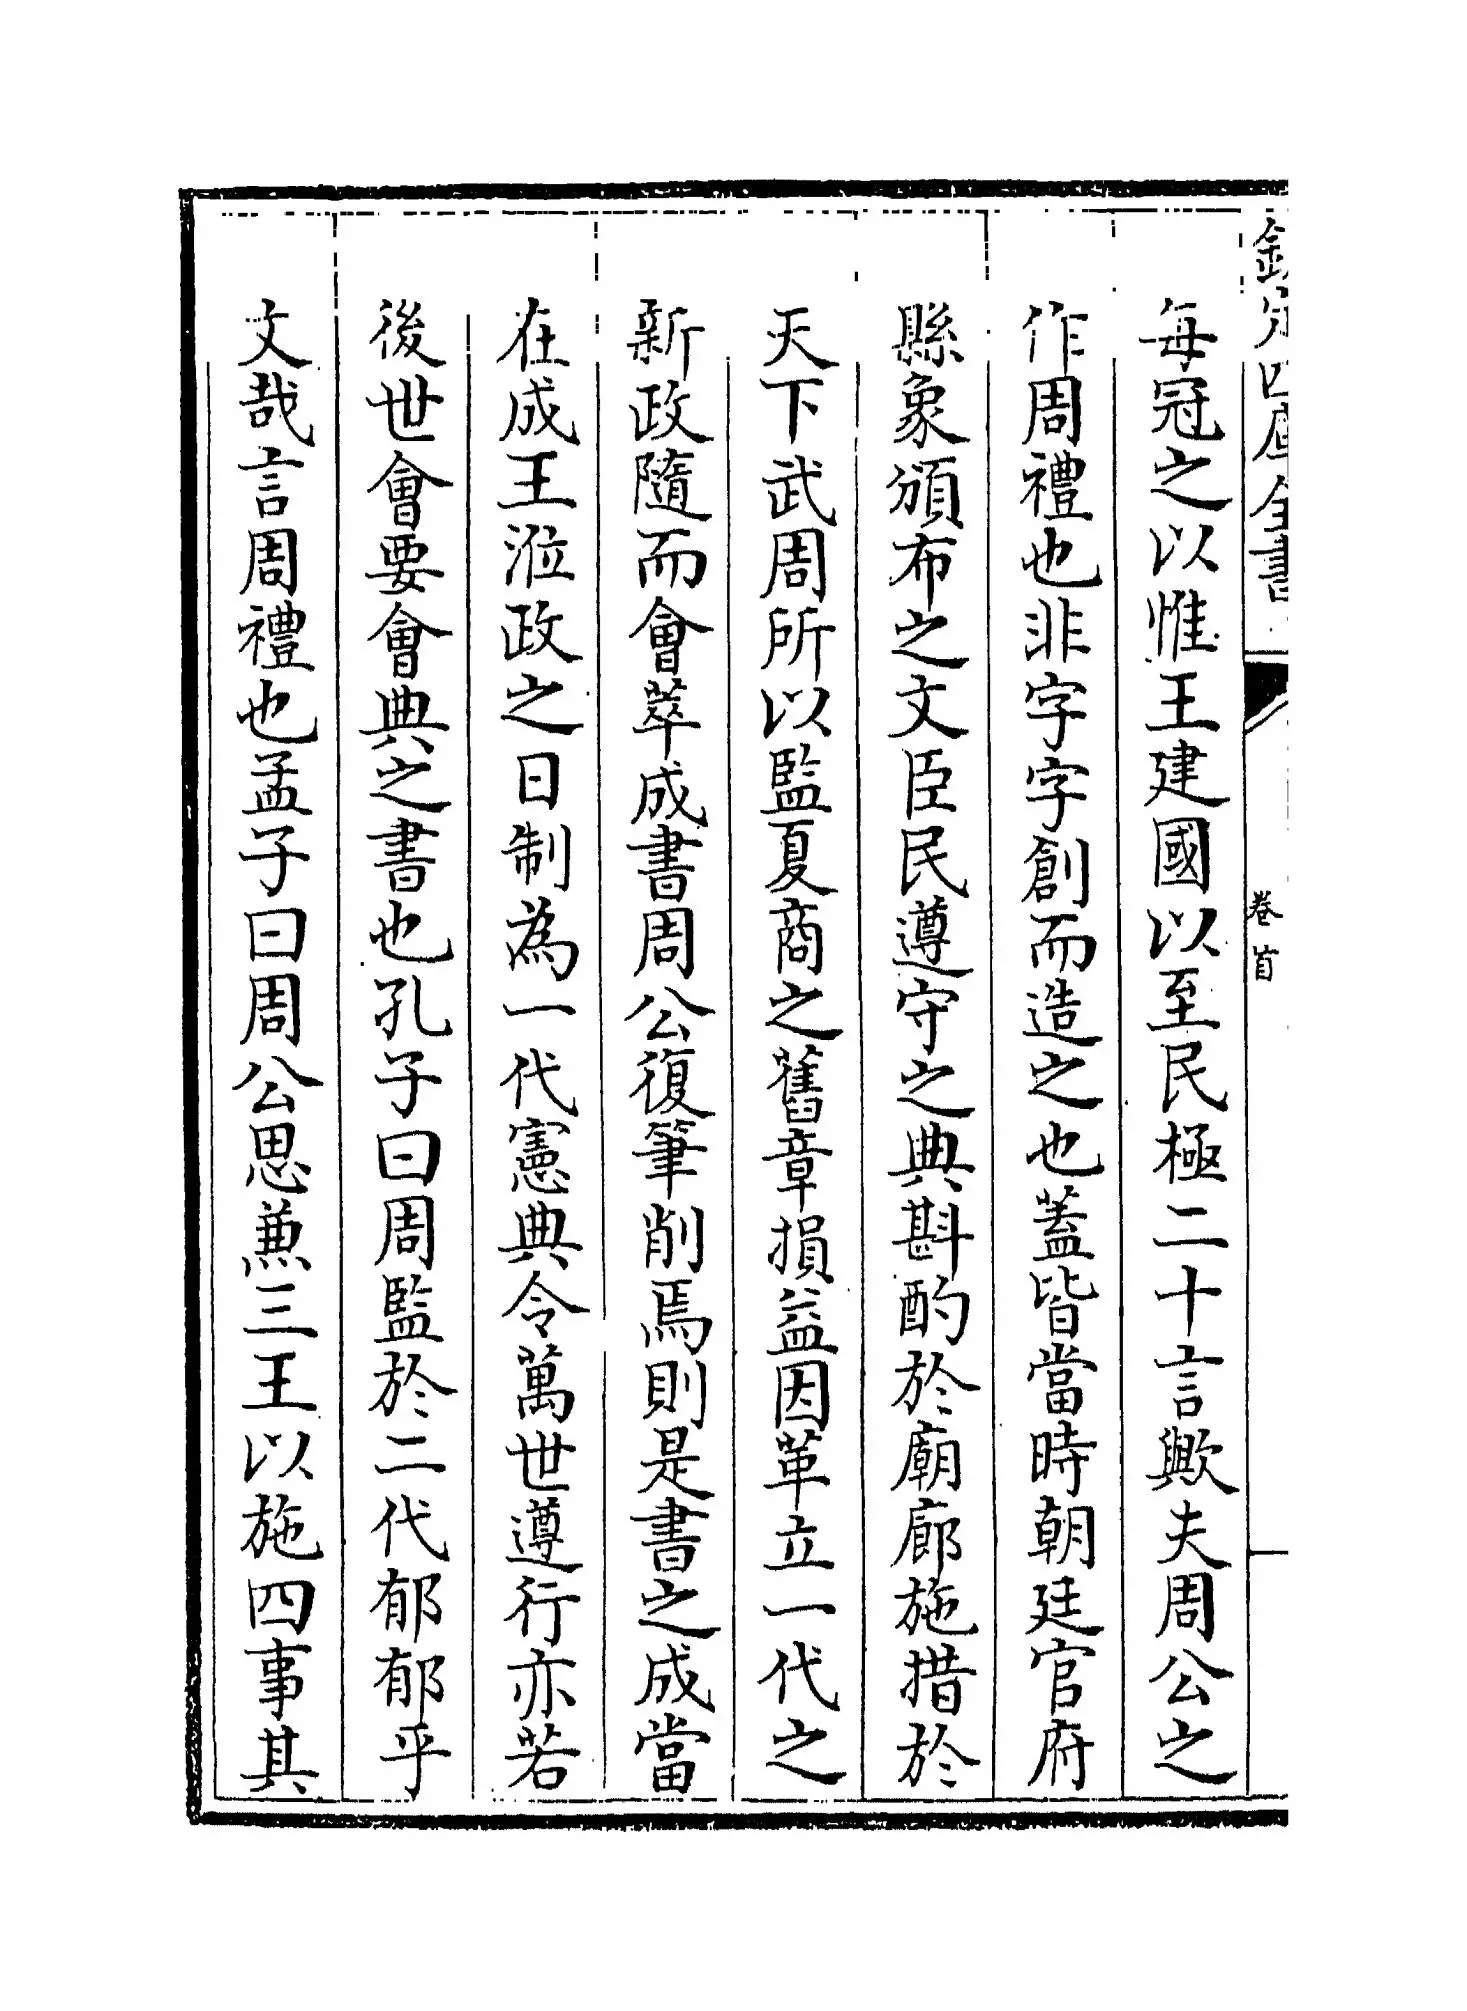 欽定四庫全書
卷首
每冠之以惟王建國以至民極二十言歟夫周公之
作周禮也非字字創而造之也蓋皆當時朝廷官府
縣象頒布之文臣民遵守之典斟酌於廟廊施措於
天下武周所以監夏商之舊章損益因革立一代之
新政隨而會萃成書周公復筆削焉則是書之成當
在成王涖政之日制為一代憲典令萬世遵行亦若
後世會要會典之書也孔子曰周監於二代郁郁乎
文哉言周禮也孟子曰周公思兼三王以施四事其